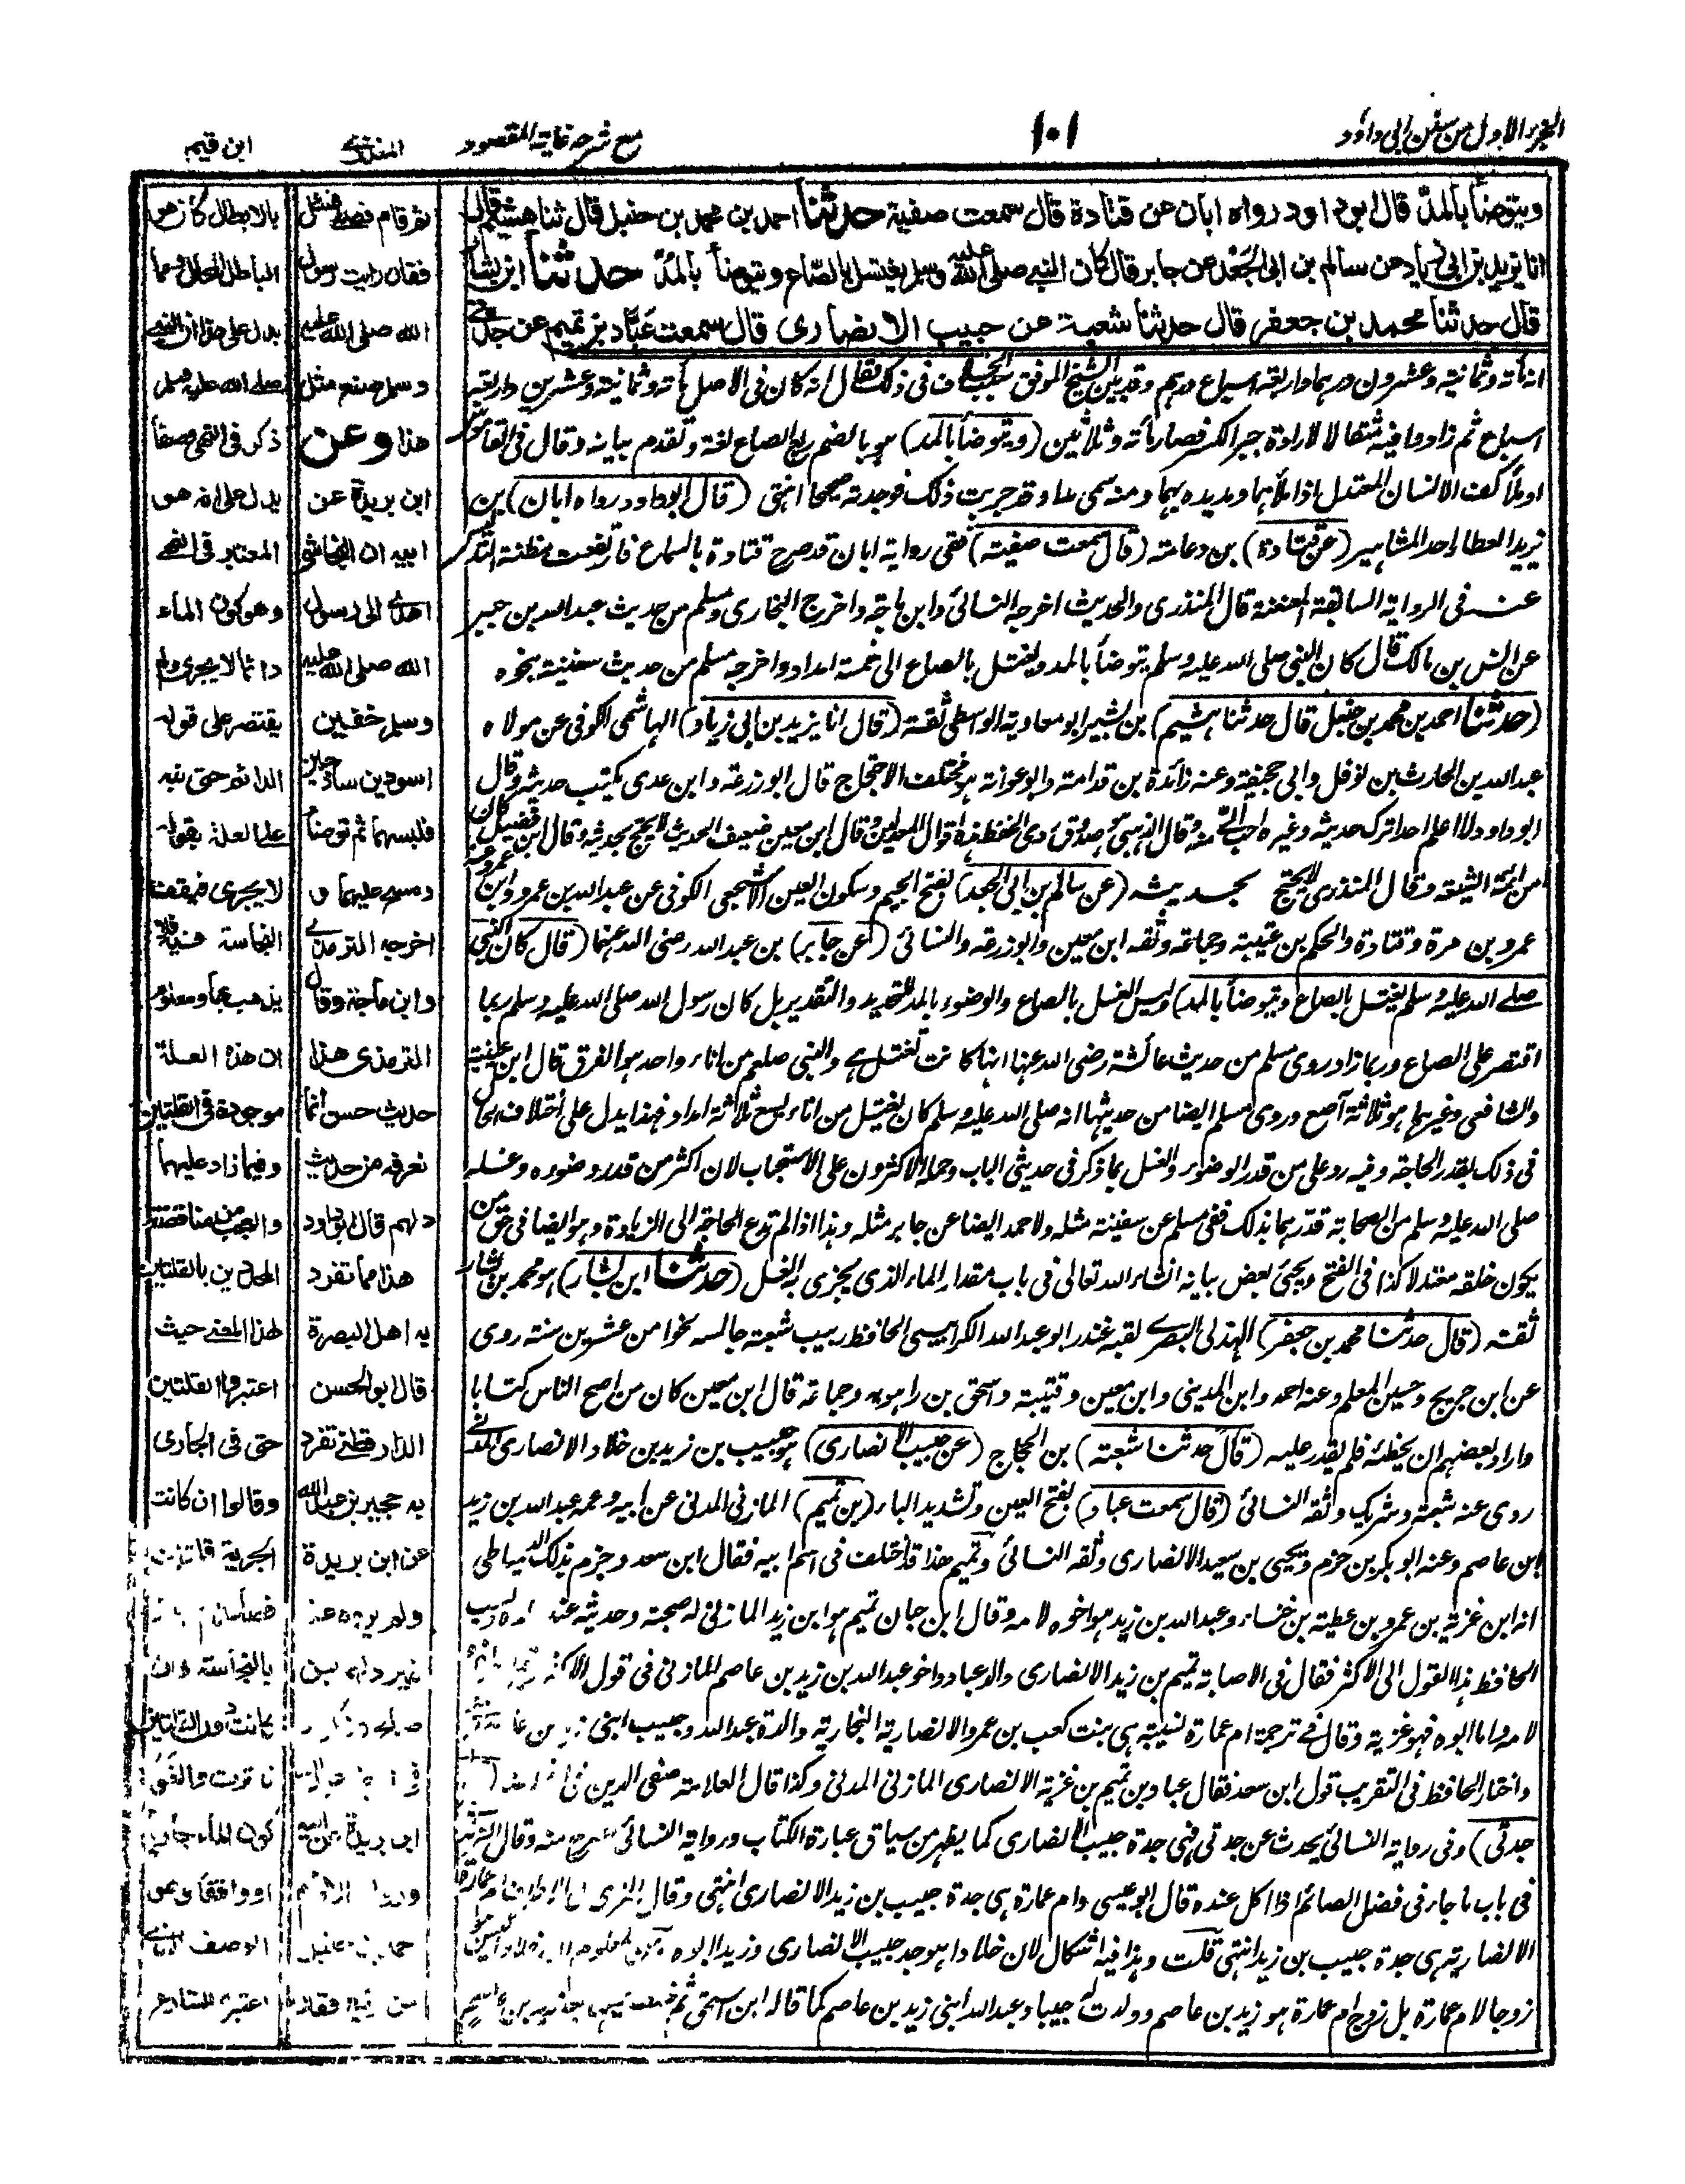 الجزء الاول من سنن ابی داؤد
١٠١
مع شرحه غاية المقصود
المنذری
ابن قیم
ويتوضأ بالمدّ قال ابو داود رواه ابان عن قتادة قال سمعت صفية حدثنا احمد بن محمد بن حنبل قال ثنا هشيم قال
انا يزيد بن ابی زياد عن سالم بن ابی الجعد عن جابر قال كان النبي صلى الله عليه وسلم يغتسل بالصّاع ويتوضأ بالمدّ حدثنا ابن بشار
قال حدثنا محمد بن جعفر قال حدثنا شعبة عن حبيب الانصاری قال سمعت عبّاد بن تميم عن جدتی
انه مأته وثمانية وعشرون درهما واربعة اسباع درهم وقد بين الشيخ الموفق سبب الخلاف فی ذلك فقال انه كان فی الاصل مأته وثمانية وعشرين واربعة
اسباع ثم زادوا فيه مثقالا لارادة جبر الكسر فصار مأته وثلاثين (ويتوضأ بالمد) هو بالضم ربع الصاع لغة وتقدم بيانه وقال فی القاموس
او ملأ كف الانسان المعتدل اذا ملأهما ومد يده بهما ومنه سمی مدا وقد جربت ذلك فوجدته صحيحا انتهی (قال ابو داود رواه ابان) بن
يزيد العطار احد المشاهير (عن قتادة) بن دعامة (قال سمعت صفية) ففی رواية ابان قد صرح قتادة بالسماع فارتفعت مظنة التدليس
عنه فی الرواية السابقة المعنعنة قال المنذری والحديث اخرجه النسائی وابن ماجة واخرج البخاری ومسلم من حديث عبد الله بن جبير
عن انس بن مالك قال كان النبی صلی الله عليه وسلم يتوضأ بالمد ويغتسل بالصاع الی خمسة امداد واخرجه مسلم من حديث سفينة بنحوه
(حدثنا احمد بن محمد بن حنبل قال حدثنا هشيم) بن بشير ابو معاوية الواسطی ثقة (قال انا يزيد بن ابی زياد) الهاشمی الكوفی عن مولاه
عبد الله بن الحارث بن نوفل وابی جحيفة وعنه زائدة بن قدامة وابو عوانة هو مختلف الاحتجاج قال ابو زرعة وابن عدی يكتب حديثه وقال
ابو داود لا اعلم احدا ترك حديثه وغيره احب الیّ منه وقال الذهبی هو صدوق ردی الحفظ هذه اقوال المعدلين وقال ابن معين ضعيف الحديث لا يحتج بحديثه وقال ابن فضيل كان
من ائمة الشيعة وقال المنذری لا يحتج بحديثه (عن سالم بن ابی الجعد) بفتح الجيم وسكون العين الاشجعی الكوفی عن عبد الله بن عمرو وابن عمر وعنه
عمرو بن مرة وقتادة والحكم بن عتيبة وجماعة وثقه ابن معين وابو زرعة والنسائی (عن جابر) بن عبد الله رضی الله عنهما (قال كان النبی
صلی الله عليه وسلم يغتسل بالصاع ويتوضأ بالمد) وليس الغسل بالصاع والوضوء بالمد للتحديد والتقدير بل كان رسول الله صلی الله عليه وسلم ربما
اقتصر علی الصاع وربما زاد روی مسلم من حديث عائشة رضی الله عنها انها كانت تغتسل هی والنبی صلعم من اناء واحد هو الفرق قال ابن عيينة
والشافعی وغيرهما هو ثلاثة آصع وروی مسلم ايضا من حديثها انه صلی الله عليه وسلم كان يغتسل من اناء يسع ثلاثة امداد فهذا يدل علی اختلاف الحال
فی ذلك بقدر الحاجة وفيه رد علی من قدر الوضوء والغسل بما ذكر فی حديثی الباب وحمله الاكثرون علی الاستحباب لان اكثر من قدر وضوءه وغسله
صلی الله عليه وسلم من الصحابة قدرهما بذلك ففی مسلم عن سفينة مثله ولاحمد ايضا عن جابر مثله وهذا اذا لم تدع الحاجة الی الزيادة وهو ايضا فی حق من
يكون خلقه معتدلا كذا فی الفتح ويجئ بعض بيانه انشاء الله تعالی فی باب مقدار الماء الذی يجزی به الغسل (حدثنا ابن بشار) هو محمد بن بشار
ثقة (قال حدثنا محمد بن جعفر) الهذلی البصری لقبه غندر ابو عبد الله الكرابيسی الحافظ ربيب شعبة جالسه نحوا من عشرين سنة روی
عن ابن جريج وحسين المعلم وعنه احمد وابن المدينی وابن معين وقتيبة واسحق بن راهويه وجماعة قال ابن معين كان من اصح الناس كتابا
واراد بعضهم ان يخطئه فلم يقدر عليه (قال حدثنا شعبة) بن الحجاج (عن حبيب الانصاری) هو حبيب بن زيد بن خلاد الانصاری المدنی
روی عنه شعبة وشريك وثقه النسائی (قال سمعت عباد) بفتح العين وتشديد الباء (بن تميم) المازنی المدنی عن ابيه وعمه عبد الله بن زيد
ابن عاصم وعنه ابو بكر بن حزم ويحيی بن سعيد الانصاری وثقه النسائی وتميم هذا قد اختلف فی اسم ابيه فقال ابن سعد وجزم بذلك الدمياطی
انه ابن غزية بن عمرو بن عطية بن خنساء وعبد الله بن زيد هو اخوه لامه وقال ابن حبان تميم هو ابن زيد المازنی له صحبة وحديثه عند
الحافظ هذا القول الی الاكثر فقال فی الاصابة تميم بن زيد الانصاری والد عباد واخو عبد الله بن زيد بن عاصم المازنی فی قول الاكثر
لامه واما ابوه فهو غزية وقال فی ترجمة ام عمارة نسيبة هی بنت كعب بن عمرو الانصارية النجارية والدة عبد الله وحبيب ابنی زيد بن عاصم
واختار الحافظ فی التقريب قول ابن سعد فقال عباد بن تميم بن غزية الانصاری المازنی المدنی وكذا قال العلامة صفی الدين
جدتی) وفی رواية النسائی يحدث عن جدتی فهی جدة حبيب الانصاری كما يظهر من سياق عبارة الكتاب ورواية النسائی منه وقال الترمذی
فی باب ما جاء فی فضل الصائم اذا اكل عنده قال ابو عيسی وام عمارة هی جدة حبيب بن زيد الانصاری انتهی وقال المزی فی الاطراف ام عمارة
الانصارية هی جدة حبيب بن زيد انتهی قلت وهذا فيه اشكال لان خلادا هو جد حبيب الانصاری وزيدا ابوه
زوجا لام عمارة بل زوج ام عمارة هو زيد بن عاصم وولدت له حبيبا وعبد الله ابنی زيد بن عاصم كما قاله ابن اسحق ثم
ثم قام فصلی
فقال رايت رسول
الله صلی الله عليه
وسلم صنع مثل
هذا وعن
ابن بريدة عن
ابيه ان النجاشی
اهدی الی رسول
الله صلی الله عليه
وسلم خفين
اسودين ساذجين
فلبسهما ثم توضأ
ومسح عليهما و
اخرجه الترمذی
وابن ماجة وقال
الترمذی هذا
حديث حسن انما
نعرفه من حديث
دلهم قال ابو داود
هذا مما تفرد
به اهل البصرة
قال ابو الحسن
الدارقطنی تفرد
به حجير بن عبد الله
عن ابن بريدة
ولم يروه عنه
غير دلهم بن
ابن بريدة عن ابيه
بالابطال كان هو
الباطل المحال ومما
يدل علی هذا ان النبی
صلی الله عليه وسلم
ذكر فی النهی وصفا
يدل علی انه هو
المعتبر فی النهی
وهو كون الماء
دائما لا يجری ولم
يقتصر علی قوله
الدائم حتی نبه
علی العلة بقوله
لا يجری فتقف
النجاسة فيه فلا
يذهب بها ومعلوم
ان هذه العلة
موجودة فی القلتين
وفيما زاد عليهما
والعجب من مناقضة
المحددين بالقلتين
لهذا المعنی حيث
اعتبروا القلتين
حتی فی الجاری
وقالوا ان كانت
الجرية قلتين
بالنجاسة وان
كانت دون القلتين
كون الماء جاريا
او واقفا وهو
الوصف الذی
اعتبره الشارع